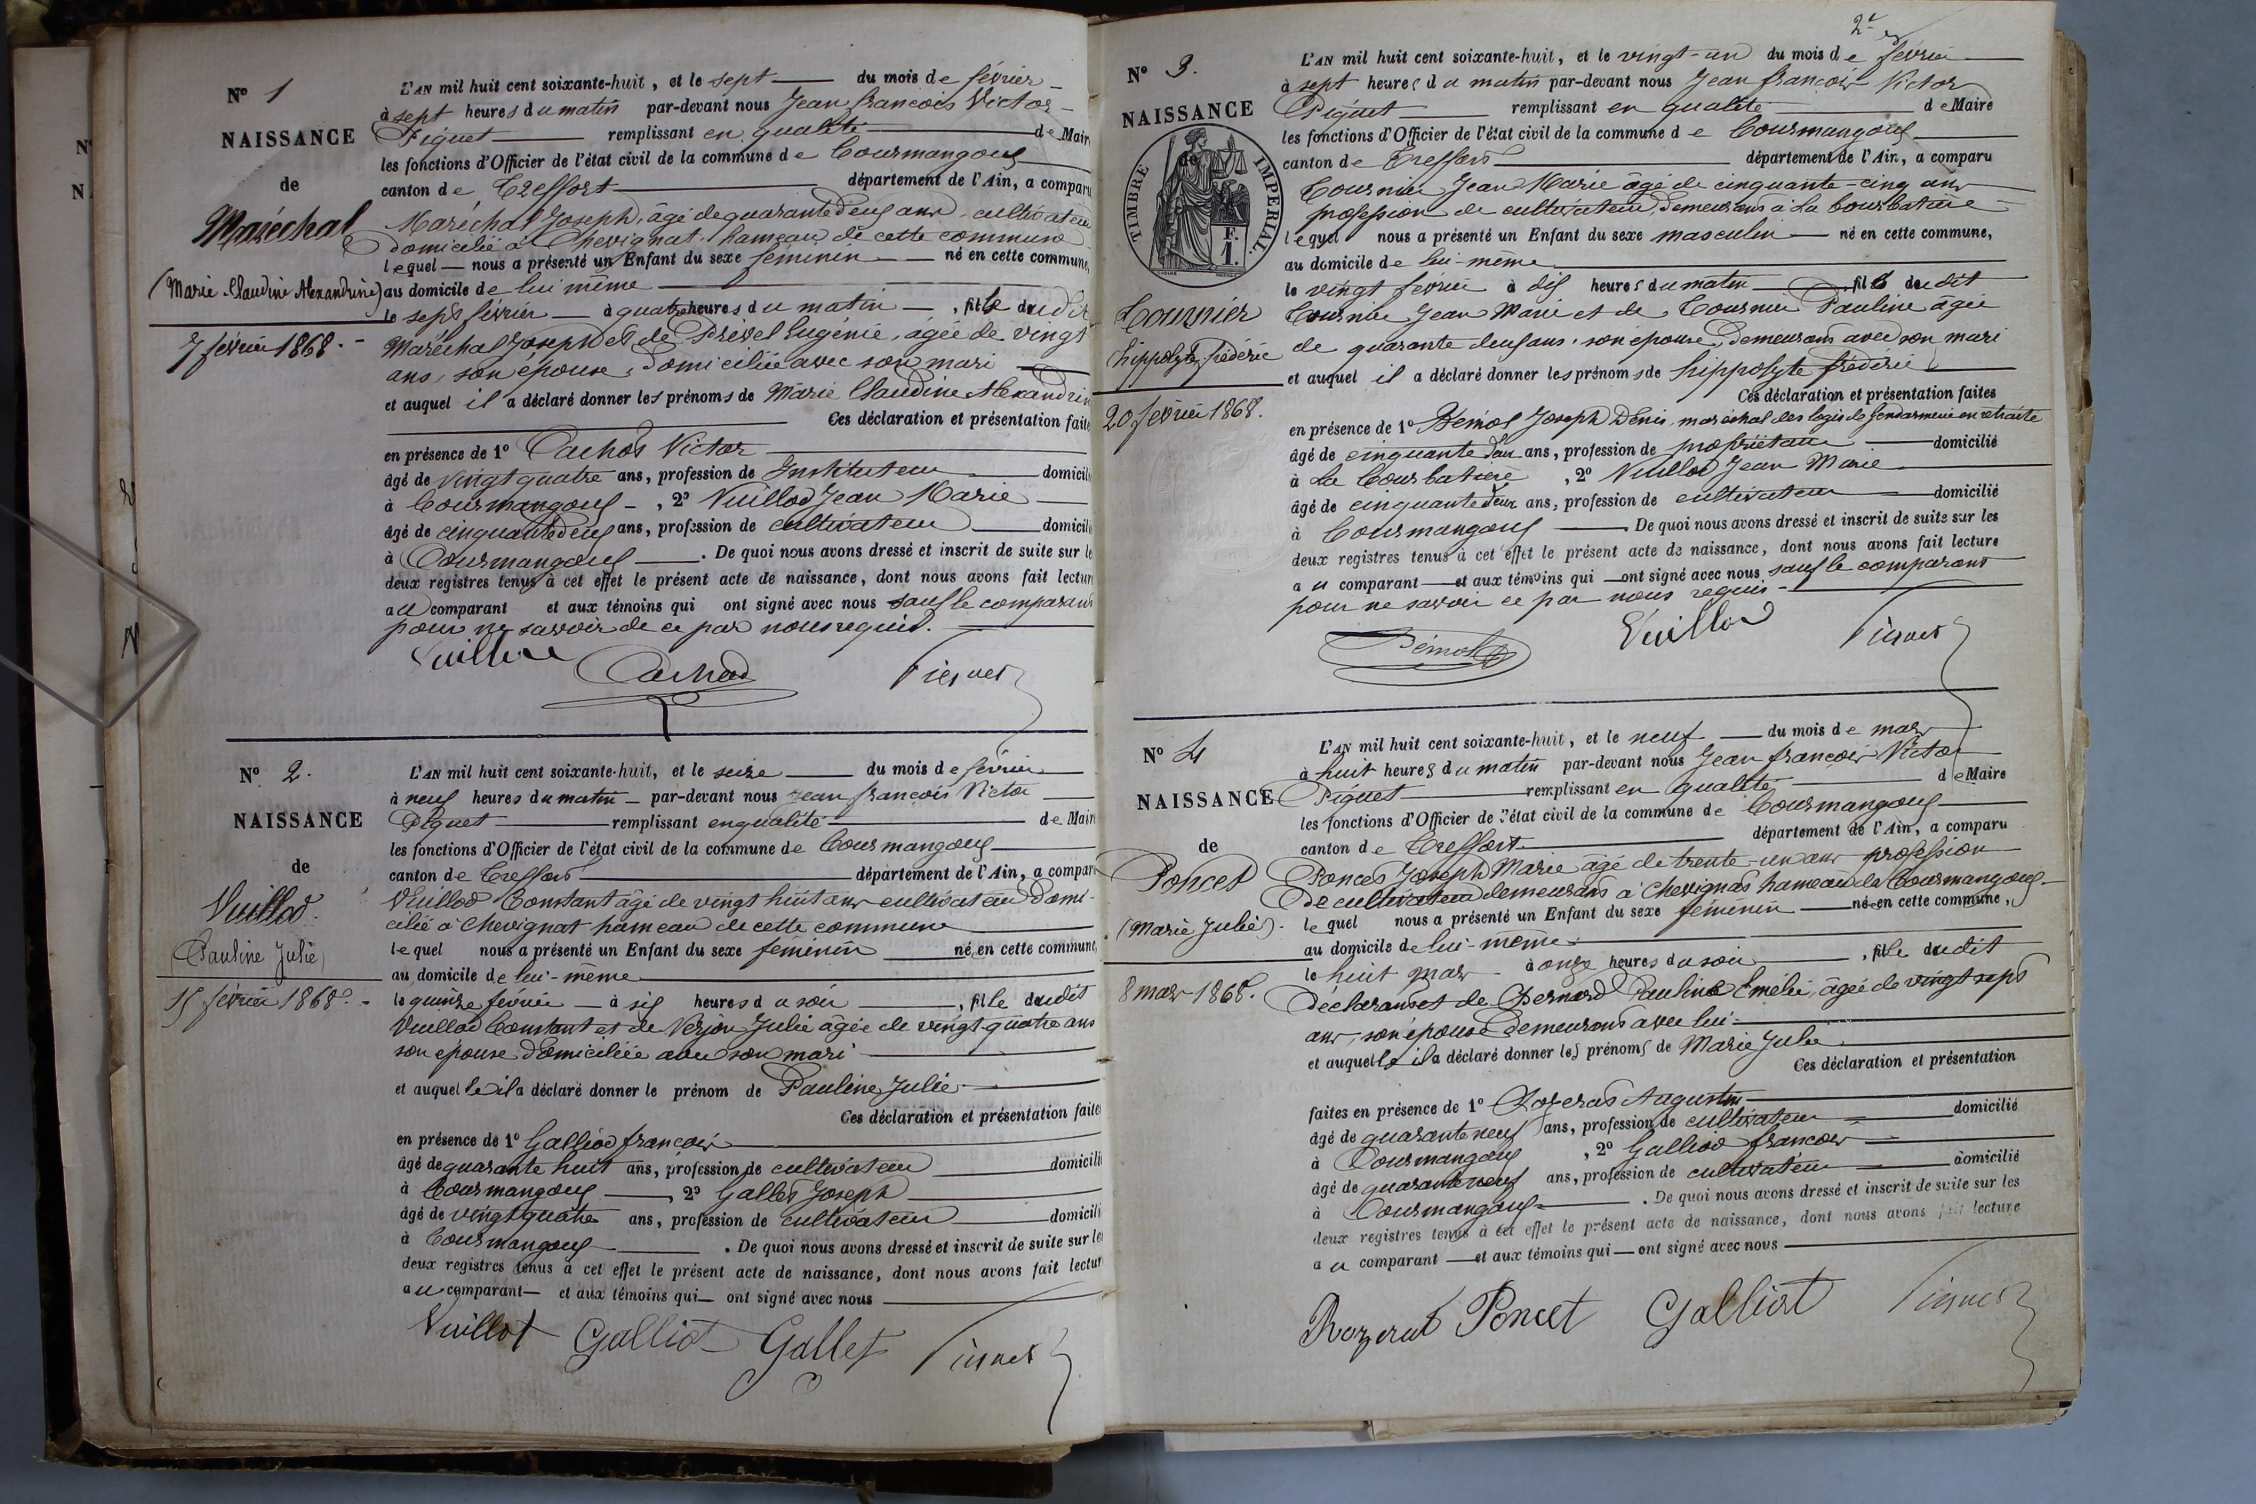 N° 1
NAISSANCE
de
Maréchal
(Marie Claudine Alexandrine)
7 février 1868.
L'AN mil huit cent soixante-huit, et le sept du mois de février
à sept heures du matin par-devant nous Jean françois Victor
Piguet remplissant en qualité de Maire
les fonctions d'Officier de l'état civil de la commune de Courmangoux
canton de Treffort département de l'Ain, a comparu
Maréchal Joseph, âgé de quarante deux ans, cultivateur
domicilié à Chevignat, hameau de cette commune
lequel nous a présenté un Enfant du sexe féminin né en cette commune,
au domicile de lui même
le sept février à quatre heures du matin, fille dudit
Maréchal Joseph et de Prével Eugénie, âgée de vingt
ans, son épouse, domiciliée avec son mari
et auquel il a déclaré donner les prénoms de Marie Claudine Alexandrine
Ces déclaration et présentation faites
en présence de 1° Cachod Victor
âgé de vingt quatre ans, profession de Instituteur domicilié
à Courmangoux, 2° Vuillod Jean Marie
âgé de cinquante deux ans, profession de cultivateur domicilié
à Courmangoux. De quoi nous avons dressé et inscrit de suite sur les
deux registres tenus à cet effet le présent acte de naissance, dont nous avons fait lecture
au comparant et aux témoins qui ont signé avec nous sauf le comparant
pour ne savoir de ce par nous requis.
Vuillod Cachod Piguet
N° 2.
NAISSANCE
de
Vuillod
(Pauline Julie)
15 février 1868.
L'AN mil huit cent soixante-huit, et le seize du mois de février
à neuf heures du matin par-devant nous Jean françois Victor
Piguet remplissant en qualité de Maire
les fonctions d'Officier de l'état civil de la commune de Courmangoux
canton de Treffort département de l'Ain, a comparu
Vuillod Constant âgé de vingt huit ans cultivateur domi-
cilié à Chevignat hameau de cette commune
lequel nous a présenté un Enfant du sexe féminin né en cette commune,
au domicile de lui-même
le quinze février à six heures du soir, fille dudit
Vuillod Constant et de Verjon Julie âgée de vingt-quatre ans
son épouse domiciliée avec son mari
et auquel le il a déclaré donner le prénom de Pauline Julie
Ces déclaration et présentation faites
en présence de 1° Galliod françois
âgé de quarante huit ans, profession de cultivateur domicilié
à Courmangoux, 2° Gallet Joseph
âgé de vingt quatre ans, profession de cultivateur domicilié
à Courmangoux. De quoi nous avons dressé et inscrit de suite sur les
deux registres tenus à cet effet le présent acte de naissance, dont nous avons fait lecture
au comparant et aux témoins qui ont signé avec nous
Vuillot Galliot Gallet Piguet
2e
N° 3.
NAISSANCE
de
TIMBRE IMPERIAL.
F.
1.
Tournier
hippolyte frédéric
20 février 1868.
L'AN mil huit cent soixante-huit, et le vingt-un du mois de février
à sept heures du matin par-devant nous Jean françois Victor
Piguet remplissant en qualité de Maire
les fonctions d'Officier de l'état civil de la commune de Courmangoux
canton de Treffort département de l'Ain, a comparu
Tournier Jean Marie âgé de cinquante-cinq ans
profession de cultivateur, demeurant à La Courbatière
lequel nous a présenté un Enfant du sexe masculin né en cette commune,
au domicile de lui-même
le vingt février à dix heures du matin fils dudit
Tournier Jean Marie et de Tournier Pauline âgée
de quarante deux ans, son épouse, demeurant avec son mari
et auquel il a déclaré donner les prénoms de hippolyte frédéric
Ces déclaration et présentation faites
en présence de 1° Bémol Joseph Denis, maréchal des logis de Gendarmerie en retraite
âgé de cinquante ans, profession de propriétaire domicilié
à La Courbatière, 2° Vuillod Jean Marie
âgé de cinquante deux ans, profession de cultivateur domicilié
à Courmangoux De quoi nous avons dressé et inscrit de suite sur les
deux registres tenus à cet effet le présent acte de naissance, dont nous avons fait lecture
au comparant et aux témoins qui ont signé avec nous sauf le comparant
pour ne savoir ce par nous requis
Bémol Vuillod Piguet
N° 4
NAISSANCE
de
Poncet
(Marie Julie).
8 mars 1868.
L'AN mil huit cent soixante-huit, et le neuf du mois de mars
à huit heures du matin par-devant nous Jean françois Victor
Piguet remplissant en qualité de Maire
les fonctions d'Officier de l'état civil de la commune de Courmangoux
canton de Treffort département de l'Ain, a comparu
Poncet Joseph Marie âgé de trente-un ans profession
de cultivateur demeurant à Chevignat hameau de Courmangoux
lequel nous a présenté un Enfant du sexe féminin né en cette commune,
au domicile de lui-même
le huit mars à onze heures du soir, fille dudit
déclarant et de Bernard Pauline Emélie, âgée de vingt sept
ans, son épouse demeurant avec lui
et auquel le il a déclaré donner les prénoms de Marie Julie
Ces déclaration et présentation
faites en présence de 1° Rozerat Augustin
âgé de quarante neuf ans, profession de cultivateur domicilié
à Courmangoux, 2° Galliod françois
âgé de quarante neuf ans, profession de cultivateur domicilié
à Courmangoux. De quoi nous avons dressé et inscrit de suite sur les
deux registres tenus à cet effet le présent acte de naissance, dont nous avons fait lecture
au comparant et aux témoins qui ont signé avec nous
Rozerat Poncet Galliot Piguet